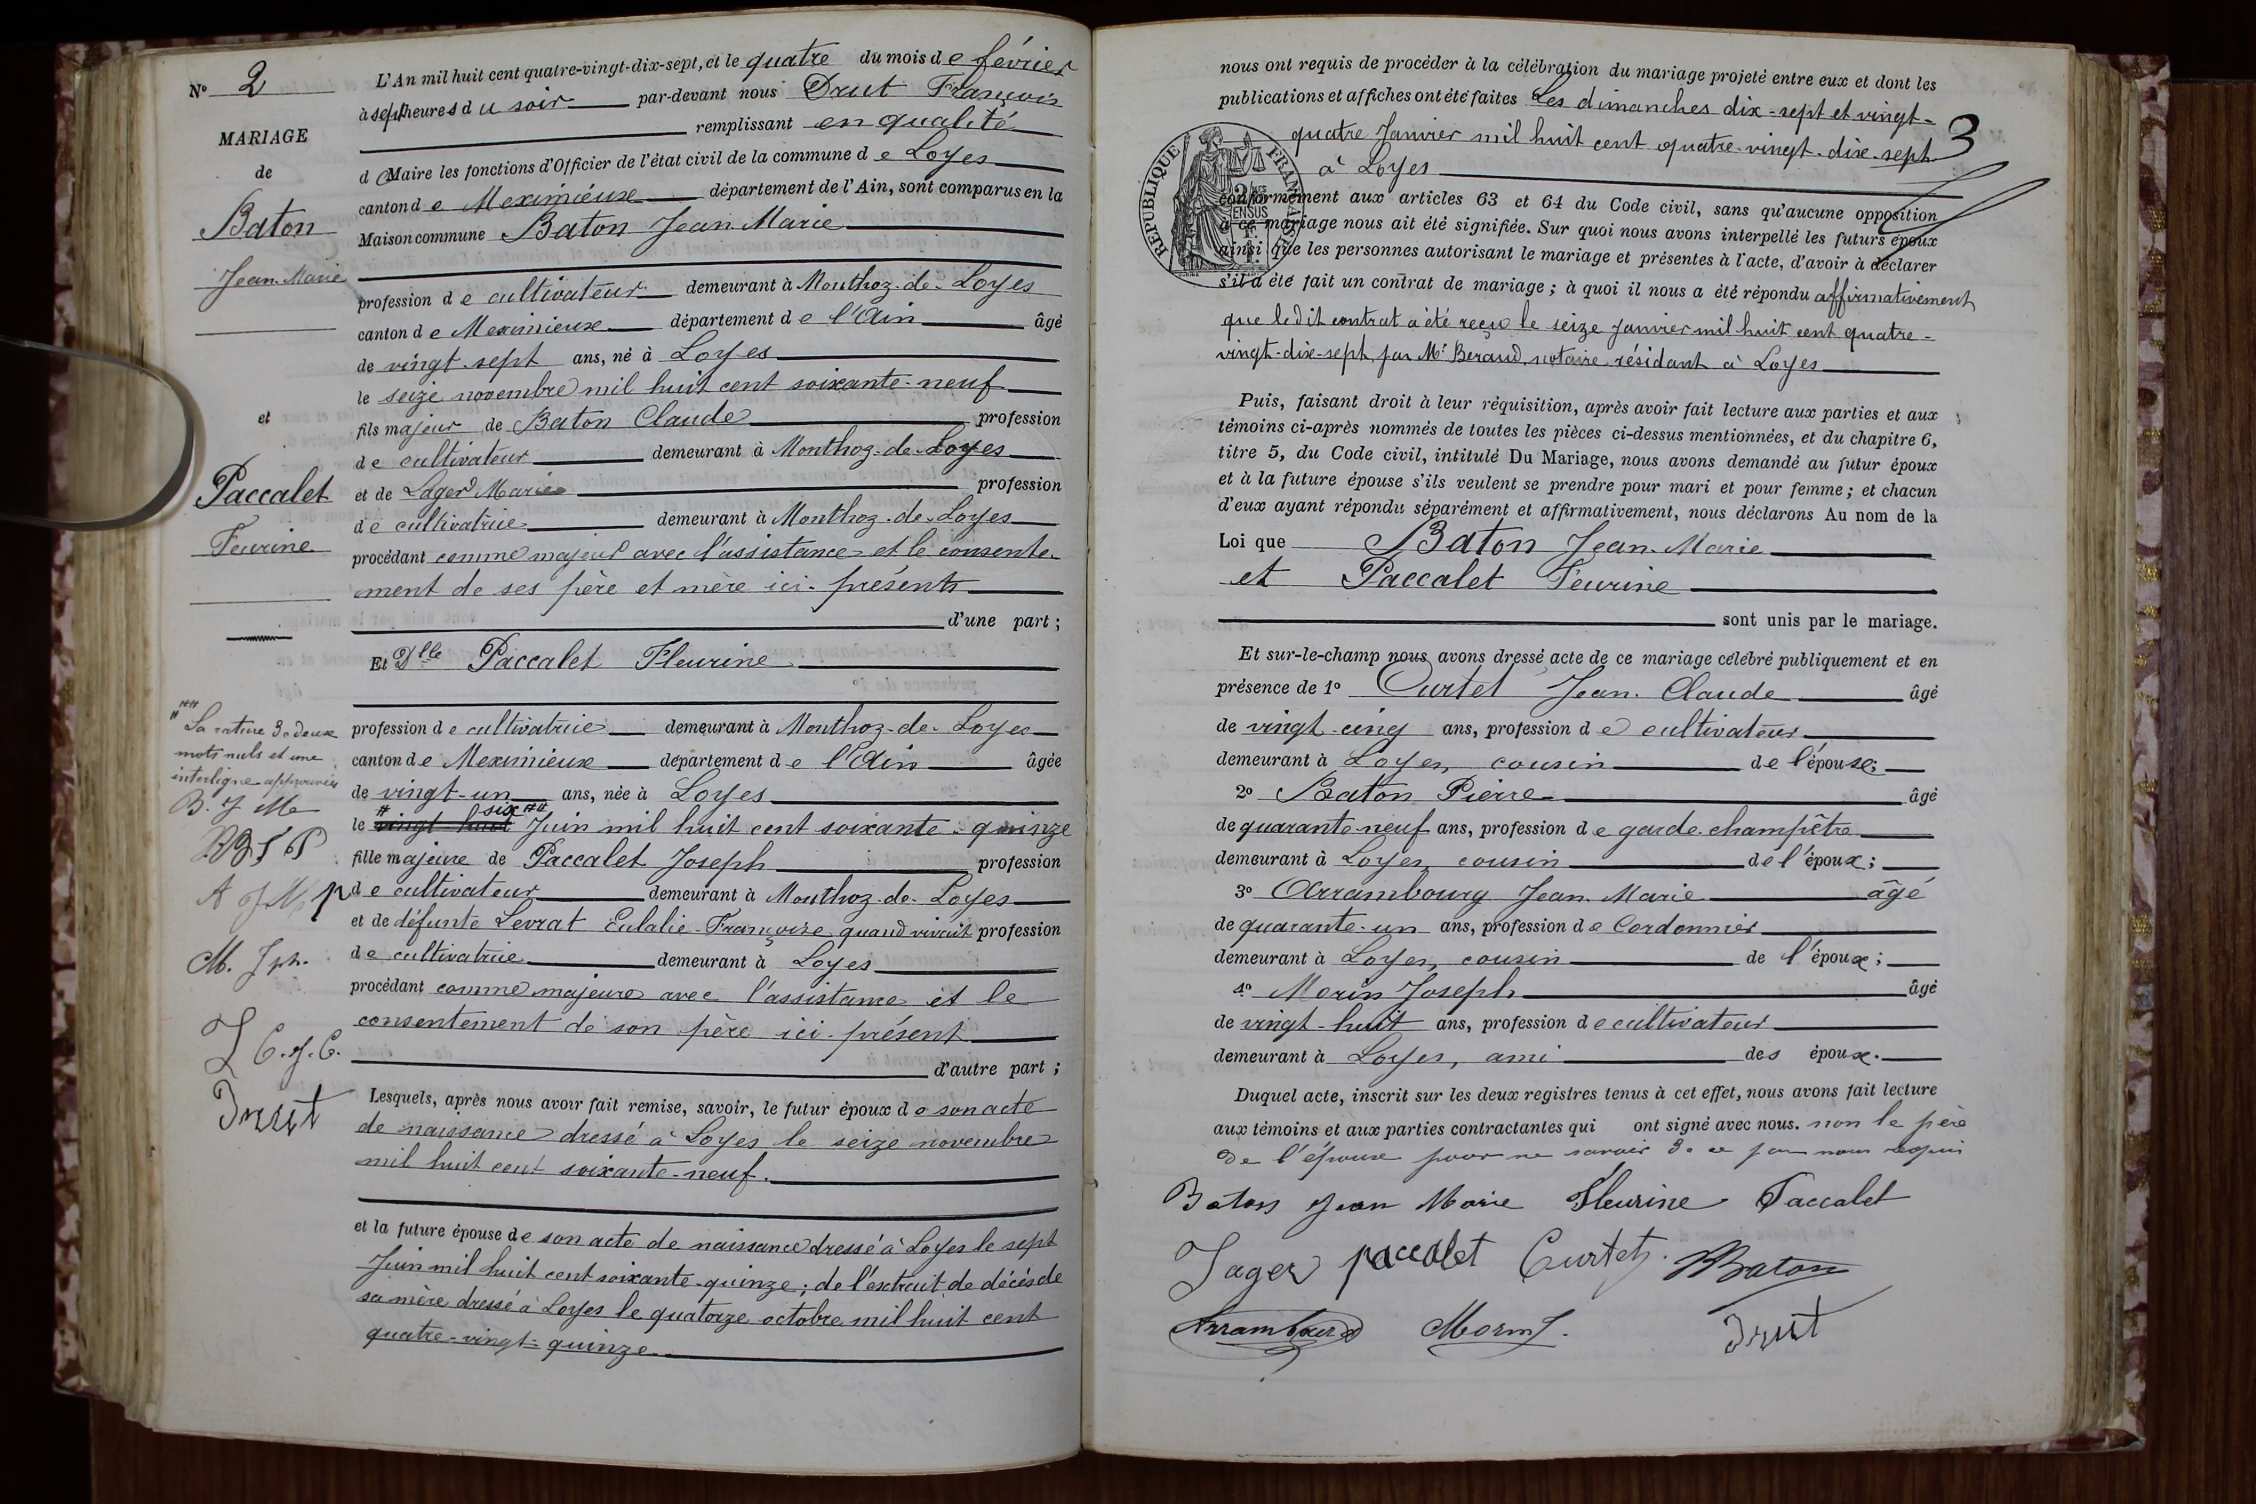 N° 2
MARIAGE
de
Baton
Jean-Marie
et
Paccalet
Feurine
La rature de deux
mots nuls et une
interligne approuvées
B. J Ma
A J M P
M. Jph.
C. J. C.
Drut
L'An mil huit cent quatre-vingt-dix-sept, et le quatre du mois de février
à sept heures du soir par-devant nous Drut François
remplissant en qualité
de Maire les fonctions d'Officier de l'état civil de la commune de Loyes
canton de Meximieux département de l'Ain, sont comparus en la
Maison commune Baton Jean Marie
profession de cultivateur demeurant à Monthoz-de-Loyes
canton de Meximieux département de l'Ain âgé
de vingt-sept ans, né à Loyes
le seize novembre mil huit cent soixante-neuf
fils majeur de Baton Claude profession
de cultivateur demeurant à Monthoz-de-Loyes
et de Lager Marie profession
de cultivatrice demeurant à Monthoz-de-Loyes
procédant comme majeur avec l'assistance et le consente-
ment de ses père et mère ici-présents
d'une part ;
Et Dlle Paccalet Fleurine
profession de cultivatrice demeurant à Monthoz-de-Loyes
canton de Meximieux département de l'Ain âgée
de vingt-un ans, née à Loyes
le vingt huit six Juin mil huit cent soixante-quinze
fille majeure de Paccalet Joseph profession
de cultivateur demeurant à Monthoz-de-Loyes
et de défunte Levrat Eulalie-Françoise quand vivait profession
de cultivatrice demeurant à Loyes
procédant comme majeure avec l'assistance et le
consentement de son père ici-présent
d'autre part ;
Lesquels, après nous avoir fait remise, savoir, le futur époux de son acte
de naissance dressé à Loyes le seize novembre
mil huit cent soixante-neuf.
et la future épouse de son acte de naissance dressé à Loyes le sept
Juin mil huit cent soixante-quinze ; de l'extrait de décès de
sa mère dressé à Loyes le quatorze octobre mil huit cent
quatre-vingt-quinze.
3
nous ont requis de procéder à la célébration du mariage projeté entre eux et dont les
publications et affiches ont été faites Les dimanches dix-sept et vingt-
quatre Janvier mil huit cent quatre-vingt-dix-sept
à Loyes
RÉPUBLIQUE FRANÇAISE
conformément aux articles 63 et 64 du Code civil, sans qu'aucune opposition
à ce mariage nous ait été signifiée. Sur quoi nous avons interpellé les futurs époux
ainsi que les personnes autorisant le mariage et présentes à l'acte, d'avoir à déclarer
s'il a été fait un contrat de mariage ; à quoi il nous a été répondu affirmativement
que le dit contrat a été reçu le seize Janvier mil huit cent quatre-
vingt-dix-sept par Me Beraud, notaire résidant à Loyes
Puis, faisant droit à leur réquisition, après avoir fait lecture aux parties et aux
témoins ci-après nommés de toutes les pièces ci-dessus mentionnées, et du chapitre 6,
titre 5, du Code civil, intitulé Du Mariage, nous avons demandé au futur époux
et à la future épouse s'ils veulent se prendre pour mari et pour femme ; et chacun
d'eux ayant répondu séparément et affirmativement, nous déclarons Au nom de la
Loi que Baton Jean-Marie
et Paccalet Feurine
sont unis par le mariage.
Et sur-le-champ nous avons dressé acte de ce mariage célébré publiquement et en
présence de 1° Curtet Jean-Claude âgé
de vingt-cinq ans, profession de cultivateur
demeurant à Loyes, cousin de l'épouse ;
2° Baton Pierre âgé
de quarante-neuf ans, profession de garde-champêtre
demeurant à Loyes, cousin de l'époux ;
3° Arrambourg Jean-Marie âgé
de quarante-un ans, profession de Cordonnier
demeurant à Loyes, cousin de l'époux ;
4° Morin Joseph âgé
de vingt-huit ans, profession de cultivateur
demeurant à Loyes, ami des époux.
Duquel acte, inscrit sur les deux registres tenus à cet effet, nous avons fait lecture
aux témoins et aux parties contractantes qui ont signé avec nous. non le père
de l'épouse pour ne savoir de ce par nous requis
Baton Jean Marie Fleurine Paccalet
Lager paccalet Curtet. Baton
Arrambourg Morin J. Drut